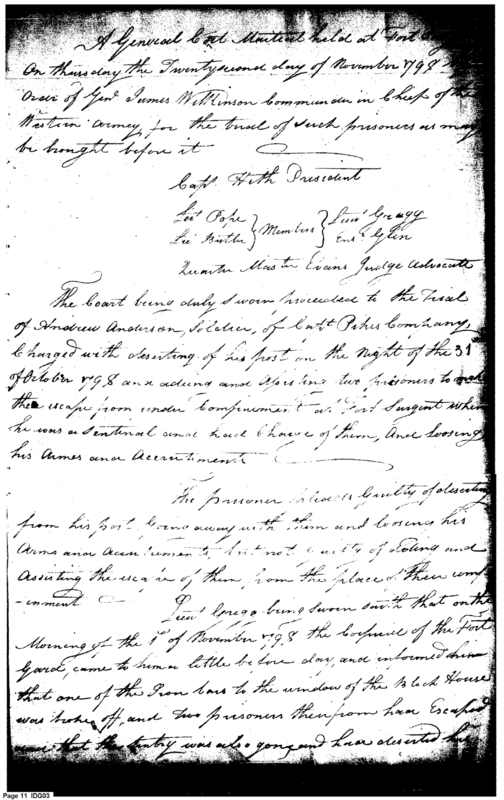 A General Cort Martial held at Fort
On thursday the Twenty second day of November 1798
order of Genl James Wilkinson Commander in Chief of the
Western Army, for the trial of such prisoners as may
be brought before it
Capt Heth President
Lieut Pope
Lie Butler } Members { Lieut Gregg
Ens Glen
Quarter Master Evans Judge Advocate
The Court being duly Sworn, proceeded to the Trial
of Andrew Anderson, Soldier, of Capt Pikes Company,
Charged with deserting of his post on the Night of the 31st
of October 1798 and adeing and Assisting two prisoners to make
there escape from under Compinement at Fort Surgent when
he was a Sentinal and had Charge of them, And Loosing
his Armes and Accrutements
The prisoner pleades Guilty of deserting
from his post, Going away with them and loosing his
Arms and Accutrements but not Guilty of adeing and
Assisting the escape of them from the place of their conf
-inment
Lieut Gregg being Sworn saith that on the
Morning of the 1st of November 1798 the Corporal of the Fort
Gard, came to him a little before day, and informed him
that one of the Iron bars to the window of the Block House
was broke off, and two prisoners therefrom had Escaped
and that the Sentry was also gone, and had deserted his
Page 11 IDG03